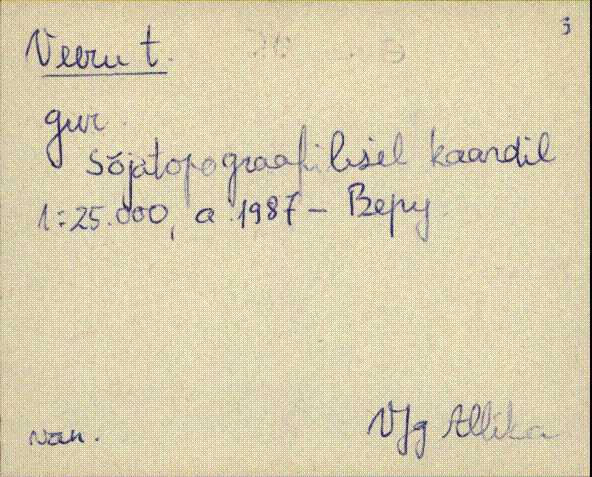 3
Veeru t.
gur.
Sõjatopograafilisel kaardil
1:25.000, a. 1987 – Веру
van.
VJg Allika